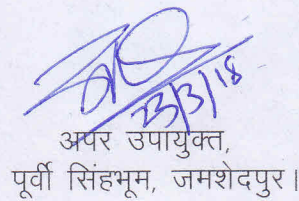 23/3/18
अपर उपायुक्त,
पूर्वी सिंहभूम, जमशेदपुर।